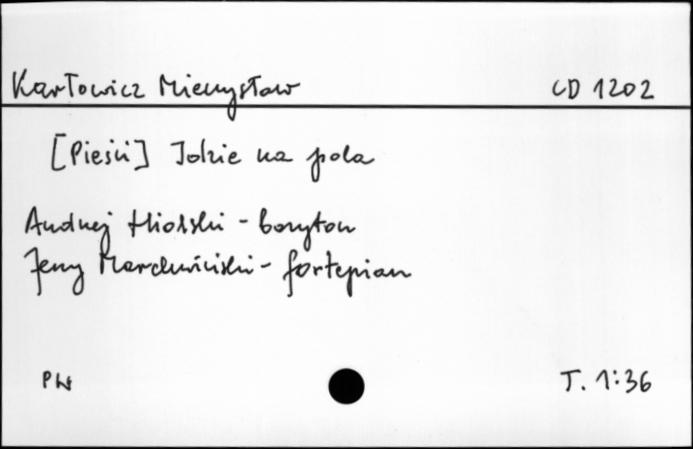 Karłowicz Mieczysław CD 1202
[Pieśń] Idzie na pola
Andrzej Hiolski - baryton
Jerzy Marchwiński - fortepian
PN T. 1:36